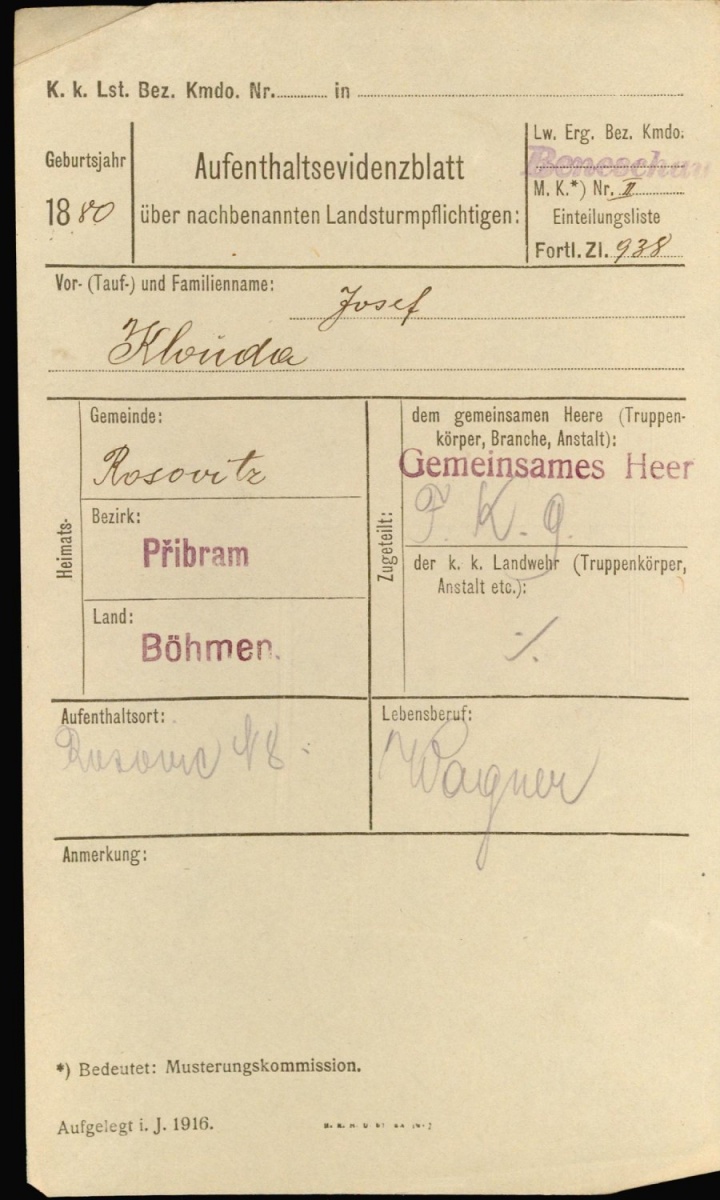 K. k. Lst. Bez. Kmdo. Nr. in
Geburtsjahr
1880
Aufenthaltsevidenzblatt
über nachbenannten Landsturmpflichtigen:
Lw. Erg. Bez. Kmdo.
Beneschau
M. K.*) Nr. II
Einteilungsliste
Fortl. Zl. 938
Vor- (Tauf-) und Familienname: Josef
Klouda
Heimats-
Gemeinde:
Rosovitz
Bezirk:
Přibram
Land:
Böhmen.
Zugeteilt:
dem gemeinsamen Heere (Truppen-
körper, Branche, Anstalt):
Gemeinsames Heer
F. K. 9.
der k. k. Landwehr (Truppenkörper,
Anstalt etc.):
./.
Aufenthaltsort:
Rosovic N8
Lebensberuf:
Wagner
Anmerkung:
*) Bedeutet: Musterungskommission.
Aufgelegt i. J. 1916.